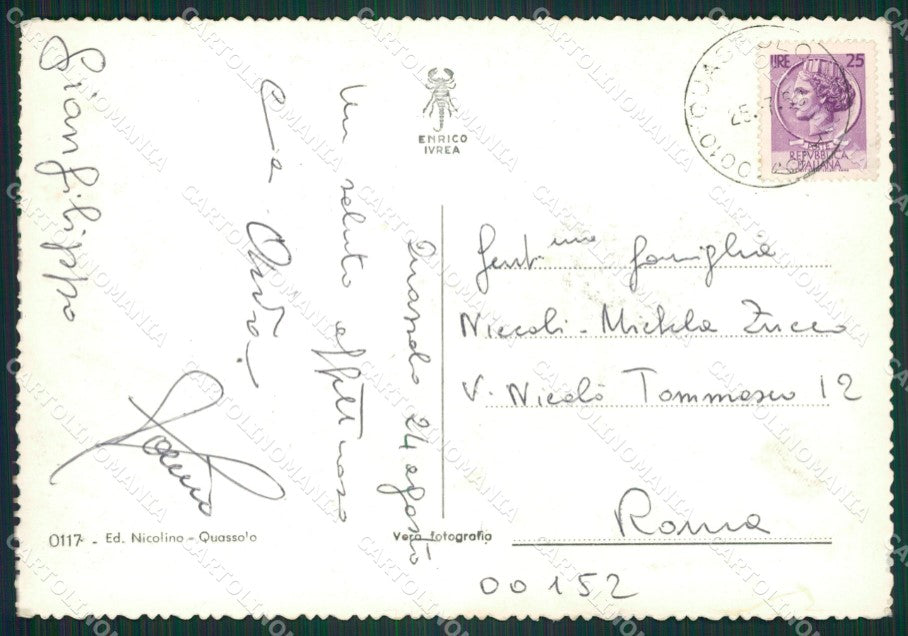 Quassolo 24 agosto
Un saluto affettuoso
Gianfilippo
ENRICO
IVREA
LIRE 25
REPVBBLICA
ITALIANA
Gent.ma famiglia
Niccoli - Michela Zucco
V. Nicolò Tommaseo 12
Roma
00152
0117 - Ed. Nicolino - Quassolo
Vera fotografia
CARTOLINOMANIA